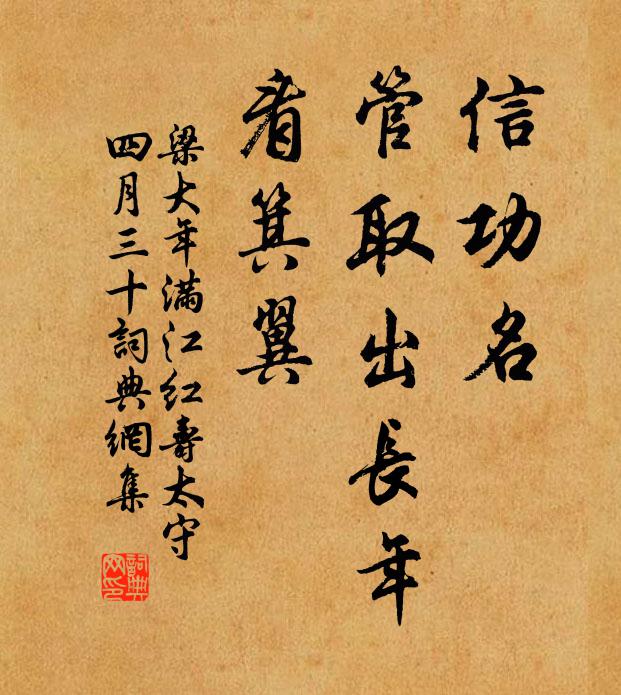 信功名
管取出長年
看箕翼
梁大年滿江紅壽太守
四月三十詞典網集
詞典
网印